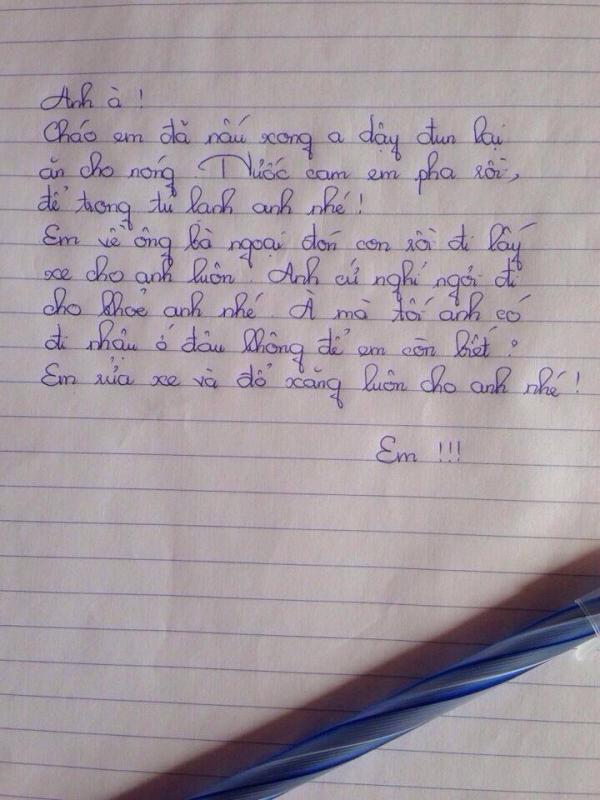 Anh à !
Cháo em đã nấu xong a dậy đun lại
ăn cho nóng. Nước cam em pha rồi,
để trong tủ lạnh anh nhé !
Em về ông bà ngoại đón con rồi đi lấy
xe cho anh luôn. Anh cứ nghỉ ngơi đi
cho khoẻ anh nhé. À mà tối anh có
đi nhậu ở đâu không để em còn biết ?
Em rửa xe và đổ xăng luôn cho anh nhé !
Em !!!